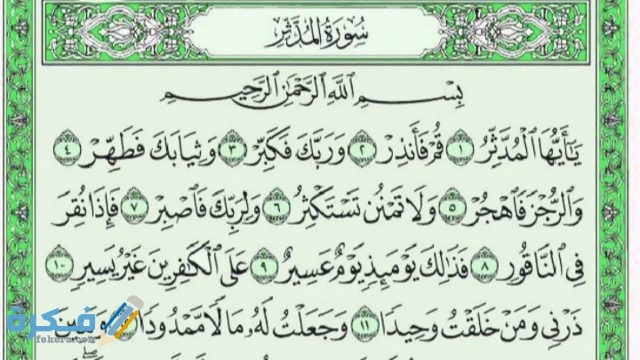 سُورَةُ الْمُدَّثِّرِ
بِسْمِ اللَّهِ الرَّحْمَٰنِ الرَّحِيمِ
يَا أَيُّهَا الْمُدَّثِّرُ ١ قُمْ فَأَنذِرْ ٢ وَرَبَّكَ فَكَبِّرْ ٣ وَثِيَابَكَ فَطَهِّرْ ٤
وَالرُّجْزَ فَاهْجُرْ ٥ وَلَا تَمْنُن تَسْتَكْثِرُ ٦ وَلِرَبِّكَ فَاصْبِرْ ٧ فَإِذَا نُقِرَ
فِي النَّاقُورِ ٨ فَذَٰلِكَ يَوْمَئِذٍ يَوْمٌ عَسِيرٌ ٩ عَلَى الْكَافِرِينَ غَيْرُ يَسِيرٍ ١٠
ذَرْنِي وَمَنْ خَلَقْتُ وَحِيدًا ١١ وَجَعَلْتُ لَهُ مَالًا مَّمْدُودًا
فكرة
fekera.com